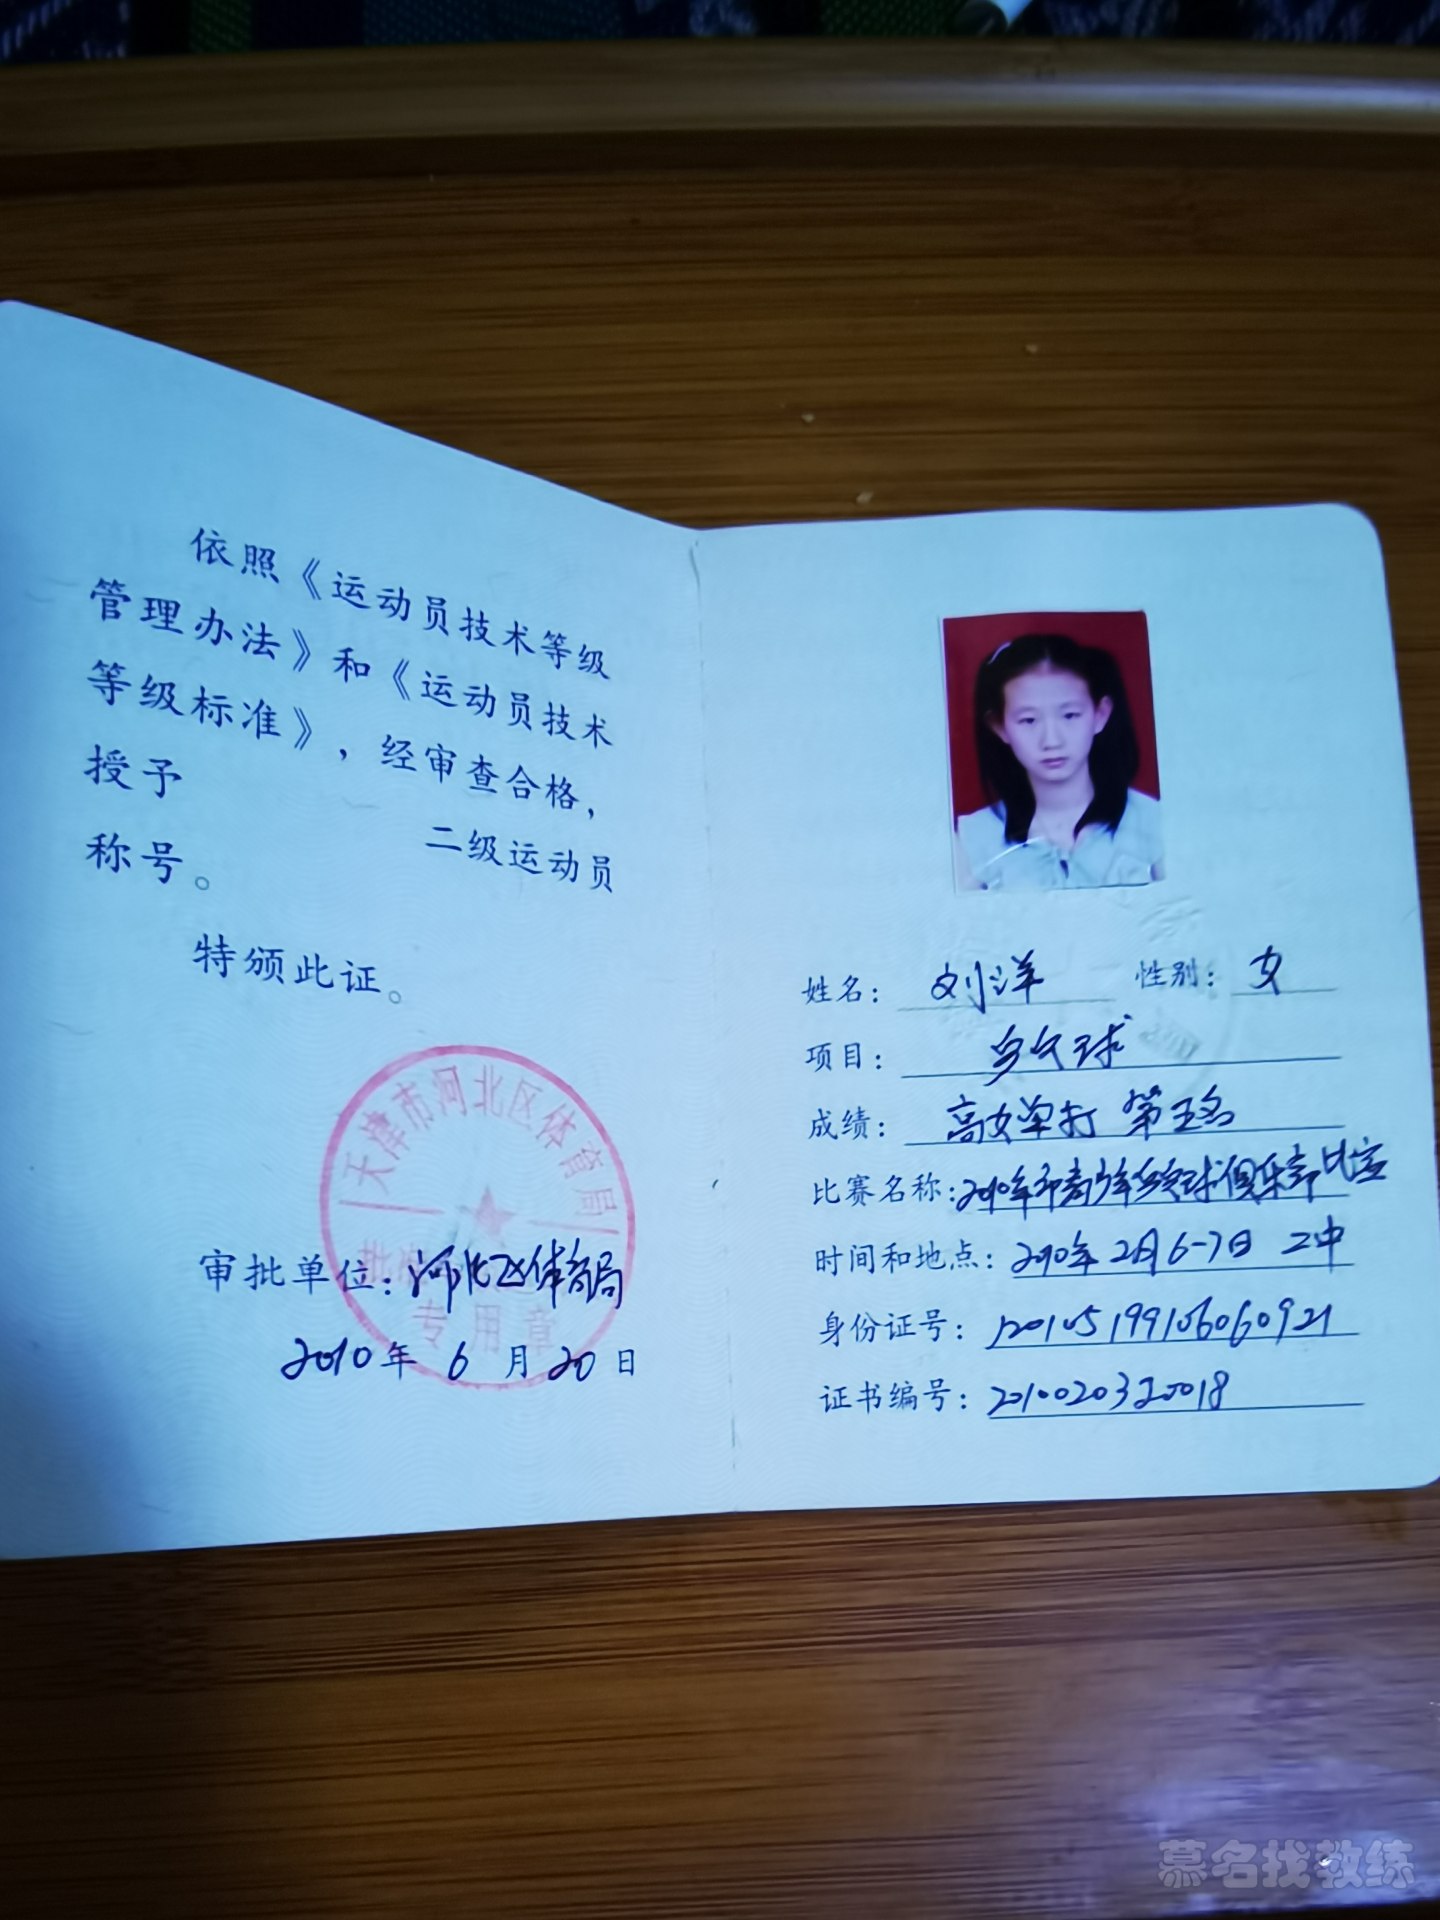 依照《运动员技术等级
管理办法》和《运动员技术
等级标准》，经审查合格，
授予
二级运动员
称号。
特颁此证。
天津市河北区体育局
专用章
审批单位：河北区体育局
2010年 6 月 20 日
姓名： 刘洋 性别： 女
项目： 乒乓球
成绩： 高女单打 第五名
比赛名称：2010年市青少年乒乓球俱乐部比赛
时间和地点：2010年2月6-7日 二中
身份证号：
证书编号：2010020320018
慕名找教练